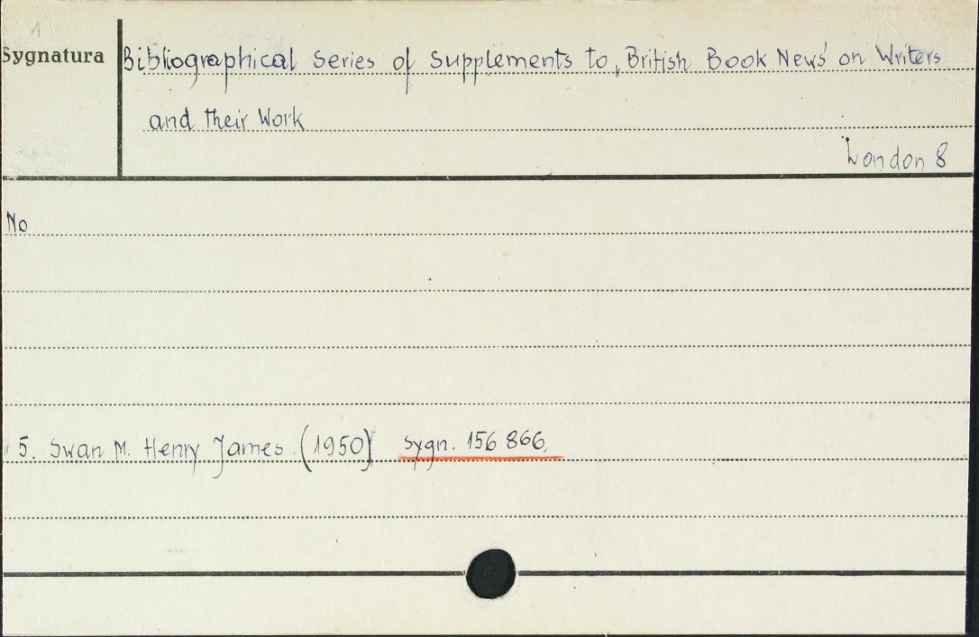 1
Sygnatura
Bibliographical Series of Supplements to „British Book News" on Writers
and their Work
London 8
No
5. Swan M. Henry James. (1950) sygn. 156 866.